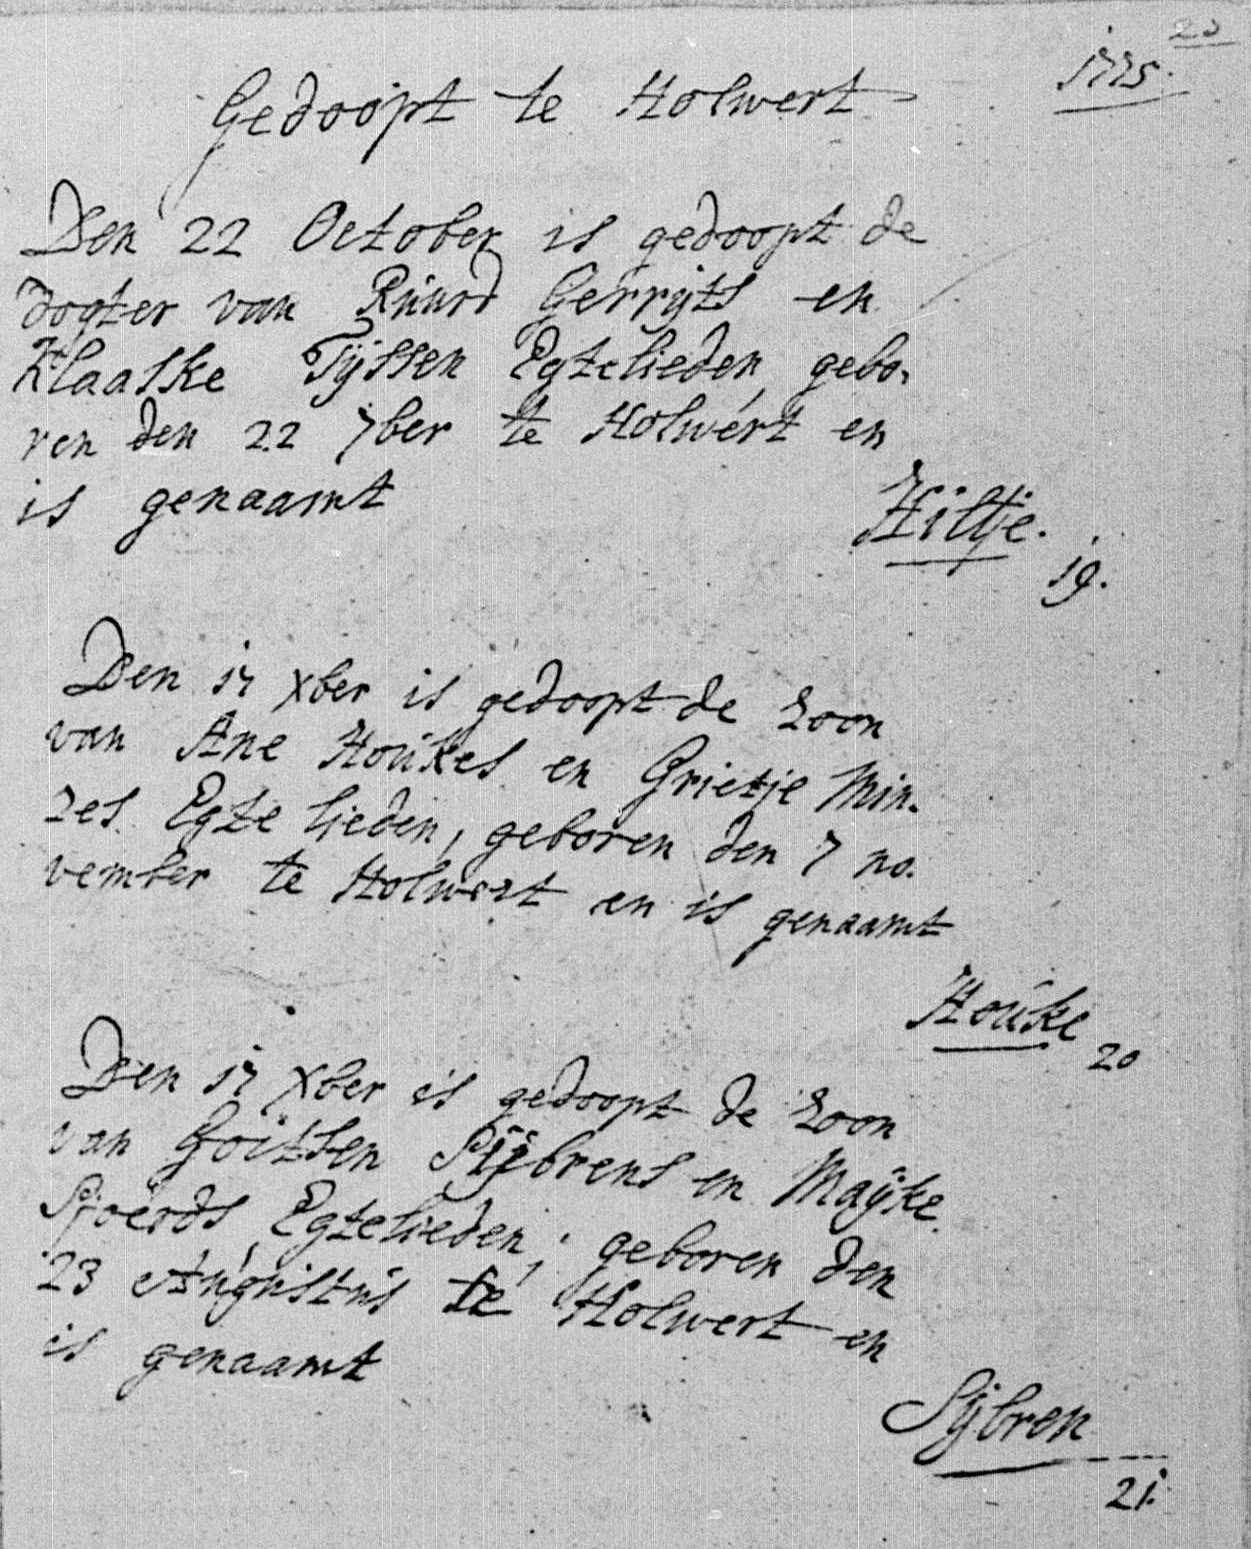 1775.
Gedoopt te Holwert
Den 22 October is gedoopt de
dogter van Ruurd Gerrijts en
Klaaske Tijssen Egtelieden, gebo,
ren den 22 7ber te Holwert en
is genaamt
Hiltje.
19.
Den 17 Xber is gedoopt de zoon
van Ane Houkes en Grietje Min.
zes Egte lieden, geboren den 7 no.
vember te Holwert en is genaamt
Houke
20
Den 17 Xber is gedoopt de zoon
van Goitsen Sijbrens en Maijke
Sjoerds Egtelieden; geboren den
23 Augustus te Holwert en
is genaamt
Sijbren
21.